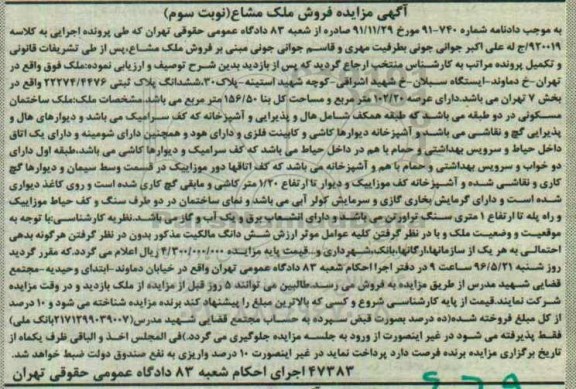 آگهی مزایده فروش ملک مشاع(نوبت سوم)
به موجب دادنامه شماره ۷۴۰-۹۱ مورخ ۹۱/۱۱/۲۹ صادره از شعبه ۸۳ دادگاه عمومی حقوقی تهران که طی پرونده اجرایی به کلاسه
۹۲۰۰۱۹/ج له علی اکبر جوانی جونی بطرفیت مهری و قاسم جوانی جونی مبنی بر فروش ملک مشاع،پس از طی تشریفات قانونی
و تکمیل پرونده مراتب به کارشناس منتخب ارجاع گردید که پس از بازدید بدین شرح توصیف و ارزیابی نموده:ملک فوق واقع در
تهران-خ دماوند-ایستگاه سبلان-خ شهید اشراقی-کوچه شهید استینه-پلاک۳۰،ششدانگ پلاک ثبتی ۲۲۲۷۴/۴۴۷۶ واقع در
بخش ۷ تهران می باشد.دارای عرصه ۱۰۲/۲۰ متر مربع و مساحت کل بنا ۱۵۶/۵۰ متر مربع می باشد. مشخصات ملک:ملک ساختمان
مسکونی در دو طبقه می باشد.که طبقه همکف شامل هال و پذیرایی و آشپزخانه که کف سرامیک می باشد و دیوارهای هال و
پذیرایی گچ و نقاشی می باشد و آشپزخانه دیوارها کاشی و کابینت فلزی و دارای هود و همچنین دارای شومینه و دارای یک اتاق
داخل حیاط و سرویس بهداشتی و حمام با هم در داخل حیاط می باشد که کف سرامیک و دیوارها کاشی می باشد.طبقه اول دارای
دو خواب و سرویس بهداشتی و حمام با هم و آشپزخانه می باشد که کف اتاقها دور موزاییک در قسمت وسط سیمان و دیوارها گچ
کاری و نقاشی شده و آشپزخانه کف موزاییک و دیوار تا ارتفاع ۱/۲۰ متر کاشی و مابقی گچ کاری شده است و روی کاغذ دیواری
شده است و دارای گرمایش بخاری گازی و سرمایش کولر آبی می باشد و نمای ساختمان در دو طرف سنگ و کف حیاط موزاییک
و راه پله تا ارتفاع ۱ متری سنگ تراورتن می باشد و دارای انشعاب برق و یک آب و گاز می باشد.نظریه کارشناسی:با توجه به
موقعیت و وضعیت ملک و با در نظر گرفتن کلیه عوامل موثر ارزش شش دانگ مالکیت مذکور بدون در نظر گرفتن هرگونه بدهی
احتمالی به هر یک از سازمانها،ارگانها،بانک،شهرداری و..قیمت پایه مزایده ۴/۳۰۰/۰۰۰/۰۰۰ ریال اعلام می گردد.که مقرر گردید
روز شنبه ۹۶/۵/۲۱ ساعت ۹ در دفتر اجرا احکام شعبه ۸۳ دادگاه عمومی تهران واقع در خیابان دماوند-ابتدای وحیدیه-مجتمع
قضایی شهید مدرس از طریق مزایده به فروش می رسد.طالبین می توانند ۵ روز قبل از مزایده از ملک بازدید و در وقت مزایده
شرکت نمایند.قیمت از پایه کارشناسی شروع و کسی که بالاترین مبلغ را پیشنهاد کند برنده مزایده شناخته می شود و ۱۰ درصد
از کل مبلغ فروخته شده(ده درصد بصورت قبض سپرده به حساب مجتمع قضایی شهید مدرس(۲۱۷۱۲۹۹۰۳۹۰۰۷بانک ملی)
فقط پذیرفته می شود در غیر اینصورت از ورود به جلسه مزایده جلوگیری می گردد.)فی المجلس اخذ و الباقی ظرف یکماه از
تاریخ برگزاری مزایده برنده فرصت دارد پرداخت نماید در غیر اینصورت ۱۰ درصد واریزی به نفع صندوق دولت ضبط خواهد شد.
۴۷۳۸۳ اجرای احکام شعبه ۸۳ دادگاه عمومی حقوقی تهران